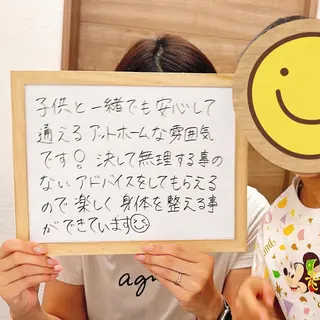 子供と一緒でも安心して
通えるアットホームな雰囲気
です♀ 決して無理する事の
ないアドバイスをしてもらえる
ので楽しく身体を整える事
ができています
agn